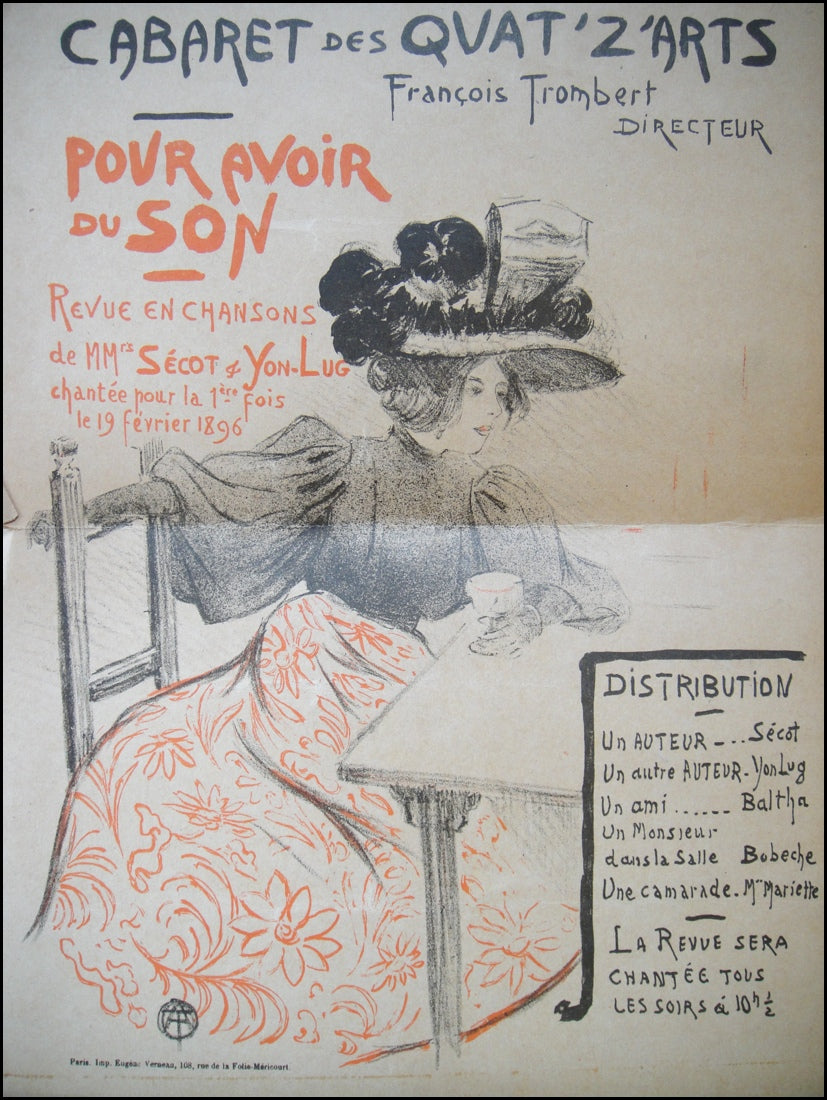 CABARET DES QUAT'Z'ARTS
François Trombert
DIRECTEUR
POUR AVOIR
DU SON
REVUE EN CHANSONS
de MMrs SÉCOT & YON-LUG
chantée pour la 1ère fois
le 19 février 1896
DISTRIBUTION
Un AUTEUR - ... Sécot
Un autre AUTEUR - Yon Lug
Un ami ...... Baltha
Un Monsieur
dans la Salle Bobeche
Une camarade - Mme Mariette
LA REVUE SERA
CHANTÉE TOUS
LES SOIRS à 10h ½
Paris. Imp. Eugène Verneau, 108, rue de la Folie-Méricourt.